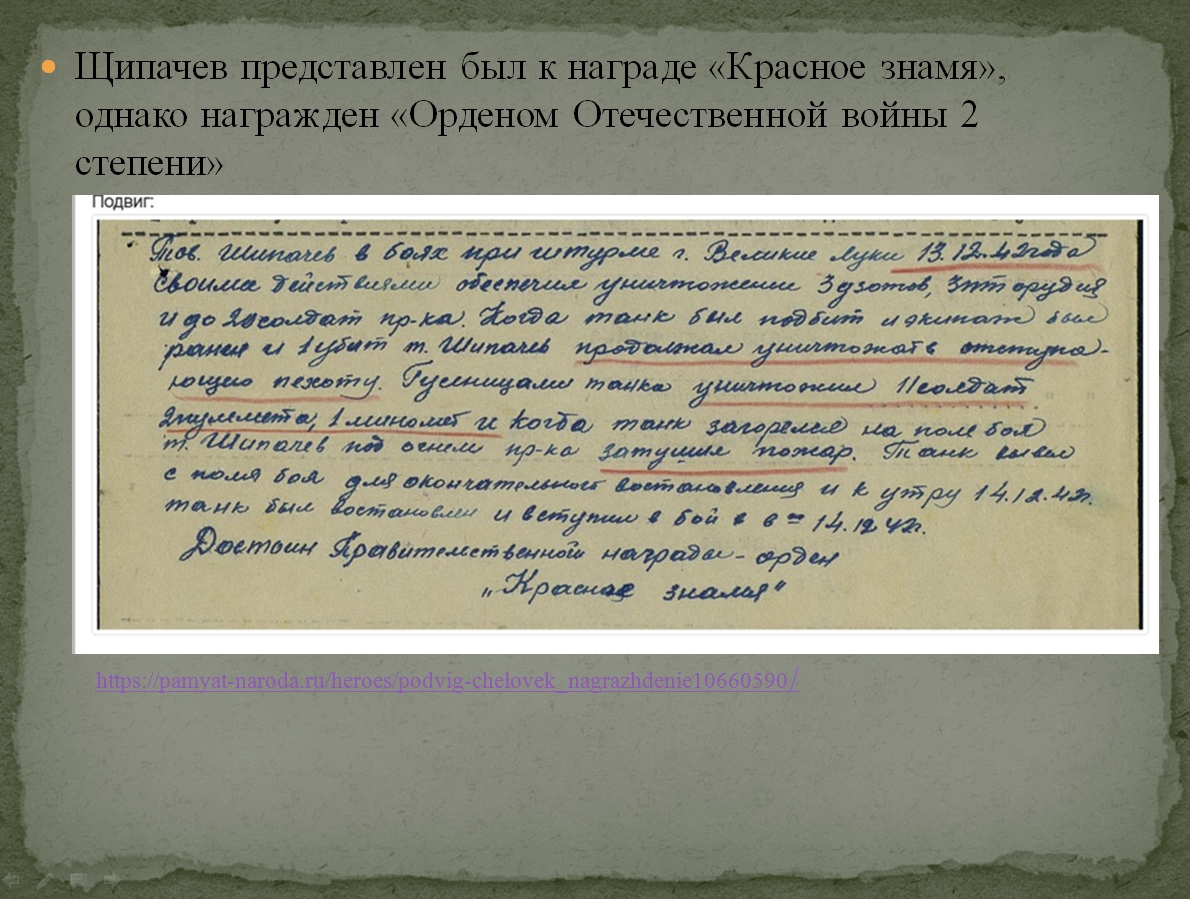 Щипачев представлен был к награде «Красное знамя»,
однако награжден «Орденом Отечественной войны 2
степени»
Подвиг:
Тов. Шипачев в боях при штурме г. Великие Луки 13.12.42 года
своими действиями обеспечил уничтожение 3 дзотов, 3 пт орудия
и до 20 солдат пр-ка. Когда танк был подбит и экипаж был
ранен и 1 убит т. Шипачев продолжал уничтожать отступа-
ющую пехоту. Гусеницами танка уничтожил 11 солдат
2 пулемета, 1 миномет и когда танк загорелся на поле боя
т. Шипачев под огнем пр-ка затушил пожар. Танк вывел
с поля боя для окончательного востановления и к утру 14.12.42г.
танк был востановлен и вступил в бой 14.12.42г.
Достоин Правительственной награды - орден
„Красное знамя"
https://pamyat-naroda.ru/heroes/podvig-chelovek_nagrazhdenie10660590/